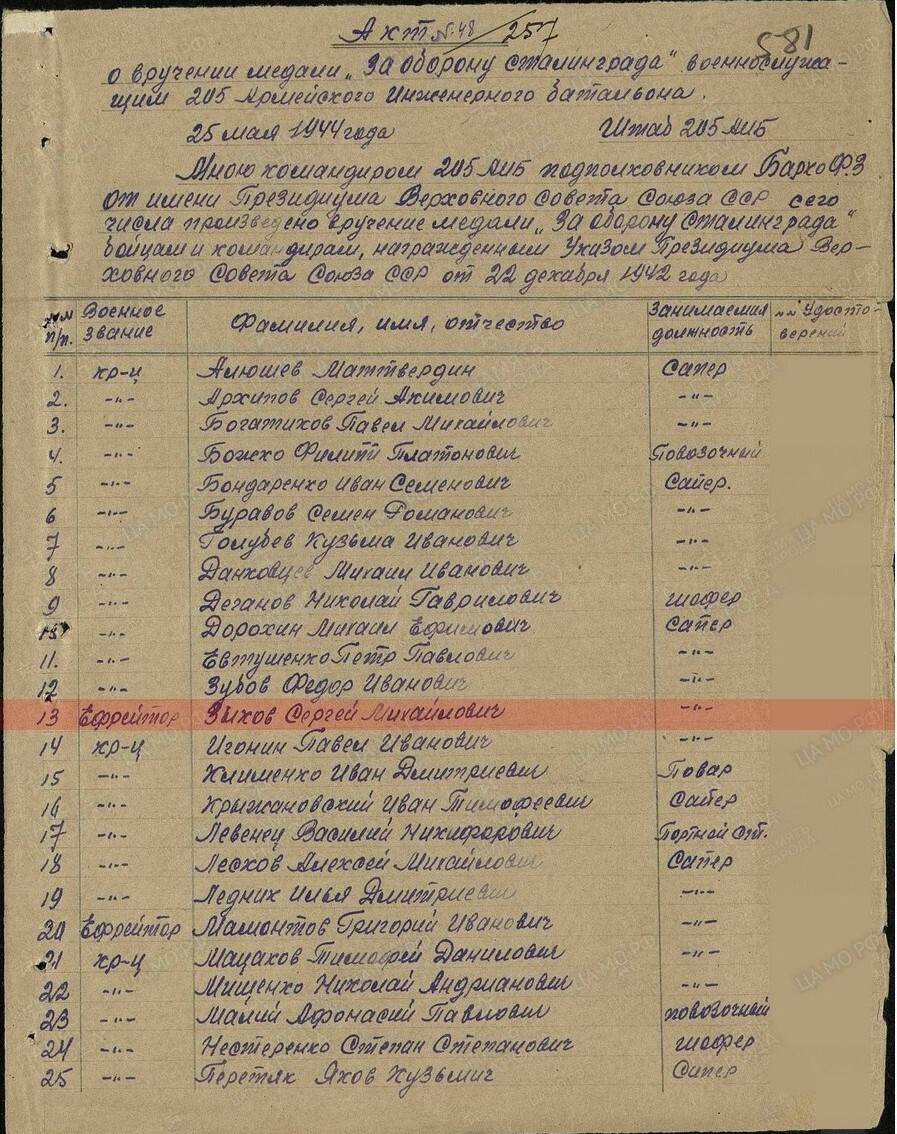 Акт № 48/257
581
о вручении медали „За оборону Сталинграда" военнослужа-
щим 205 Армейского Инженерного батальона.
25 мая 1944 года Штаб 205 АИБ
Мною командиром 205 АИБ подполковником Бархо Ф.З
от имени Президиума Верховного Совета Союза ССР сего
числа произведено вручение медали „За оборону Сталинграда"
бойцам и командирам, награжденным Указом Президиума Вер-
ховного Совета Союза ССР от 22 декабря 1942 года
п/п. Военное звание Фамилия, имя, отчество Занимаемая должность Удосто-верений
1. кр-ц Алюшев Маттвердин Сапер
2. -"- Архипов Сергей Акимович -"-
3. -"- Богатиков Павел Михайлович -"-
4. -"- Божко Филипп Платонович Повозочный
5 -"- Бондаренко Иван Семенович Сапер.
6 -"- Буравов Семен Романович -"-
7 -"- Голубев Кузьма Иванович -"-
8 -"- Данховцев Михаил Иванович -"-
9 -"- Деганов Николай Гаврилович шофер
10 -"- Дорохин Михаил Ефимович Сапер
11. -"- Евтушенко Петр Павлович -"-
12 -"- Зубов Федор Иванович -"-
13 Ефрейтор Зыков Сергей Михайлович -"-
14 кр-ц Игонин Павел Иванович -"-
15 -"- Клименко Иван Дмитриевич Повар
16 -"- Крыжановский Иван Тимофеевич Сапер
17 -"- Левенец Василий Никифорович Портной ст.
18 -"- Лесков Алексей Михайлович Сапер
19 -"- Ледник Илья Дмитриевич -"-
20 Ефрейтор Мамонтов Григорий Иванович -"-
21 кр-ц Мацаков Тимофей Данилович -"-
22 -"- Мищенко Николай Андрианович -"-
23 -"- Малий Афонасий Павлович повозочный
24 -"- Нестеренко Степан Степанович шофер
25 -"- Перетяк Яков Кузьмич Сапер